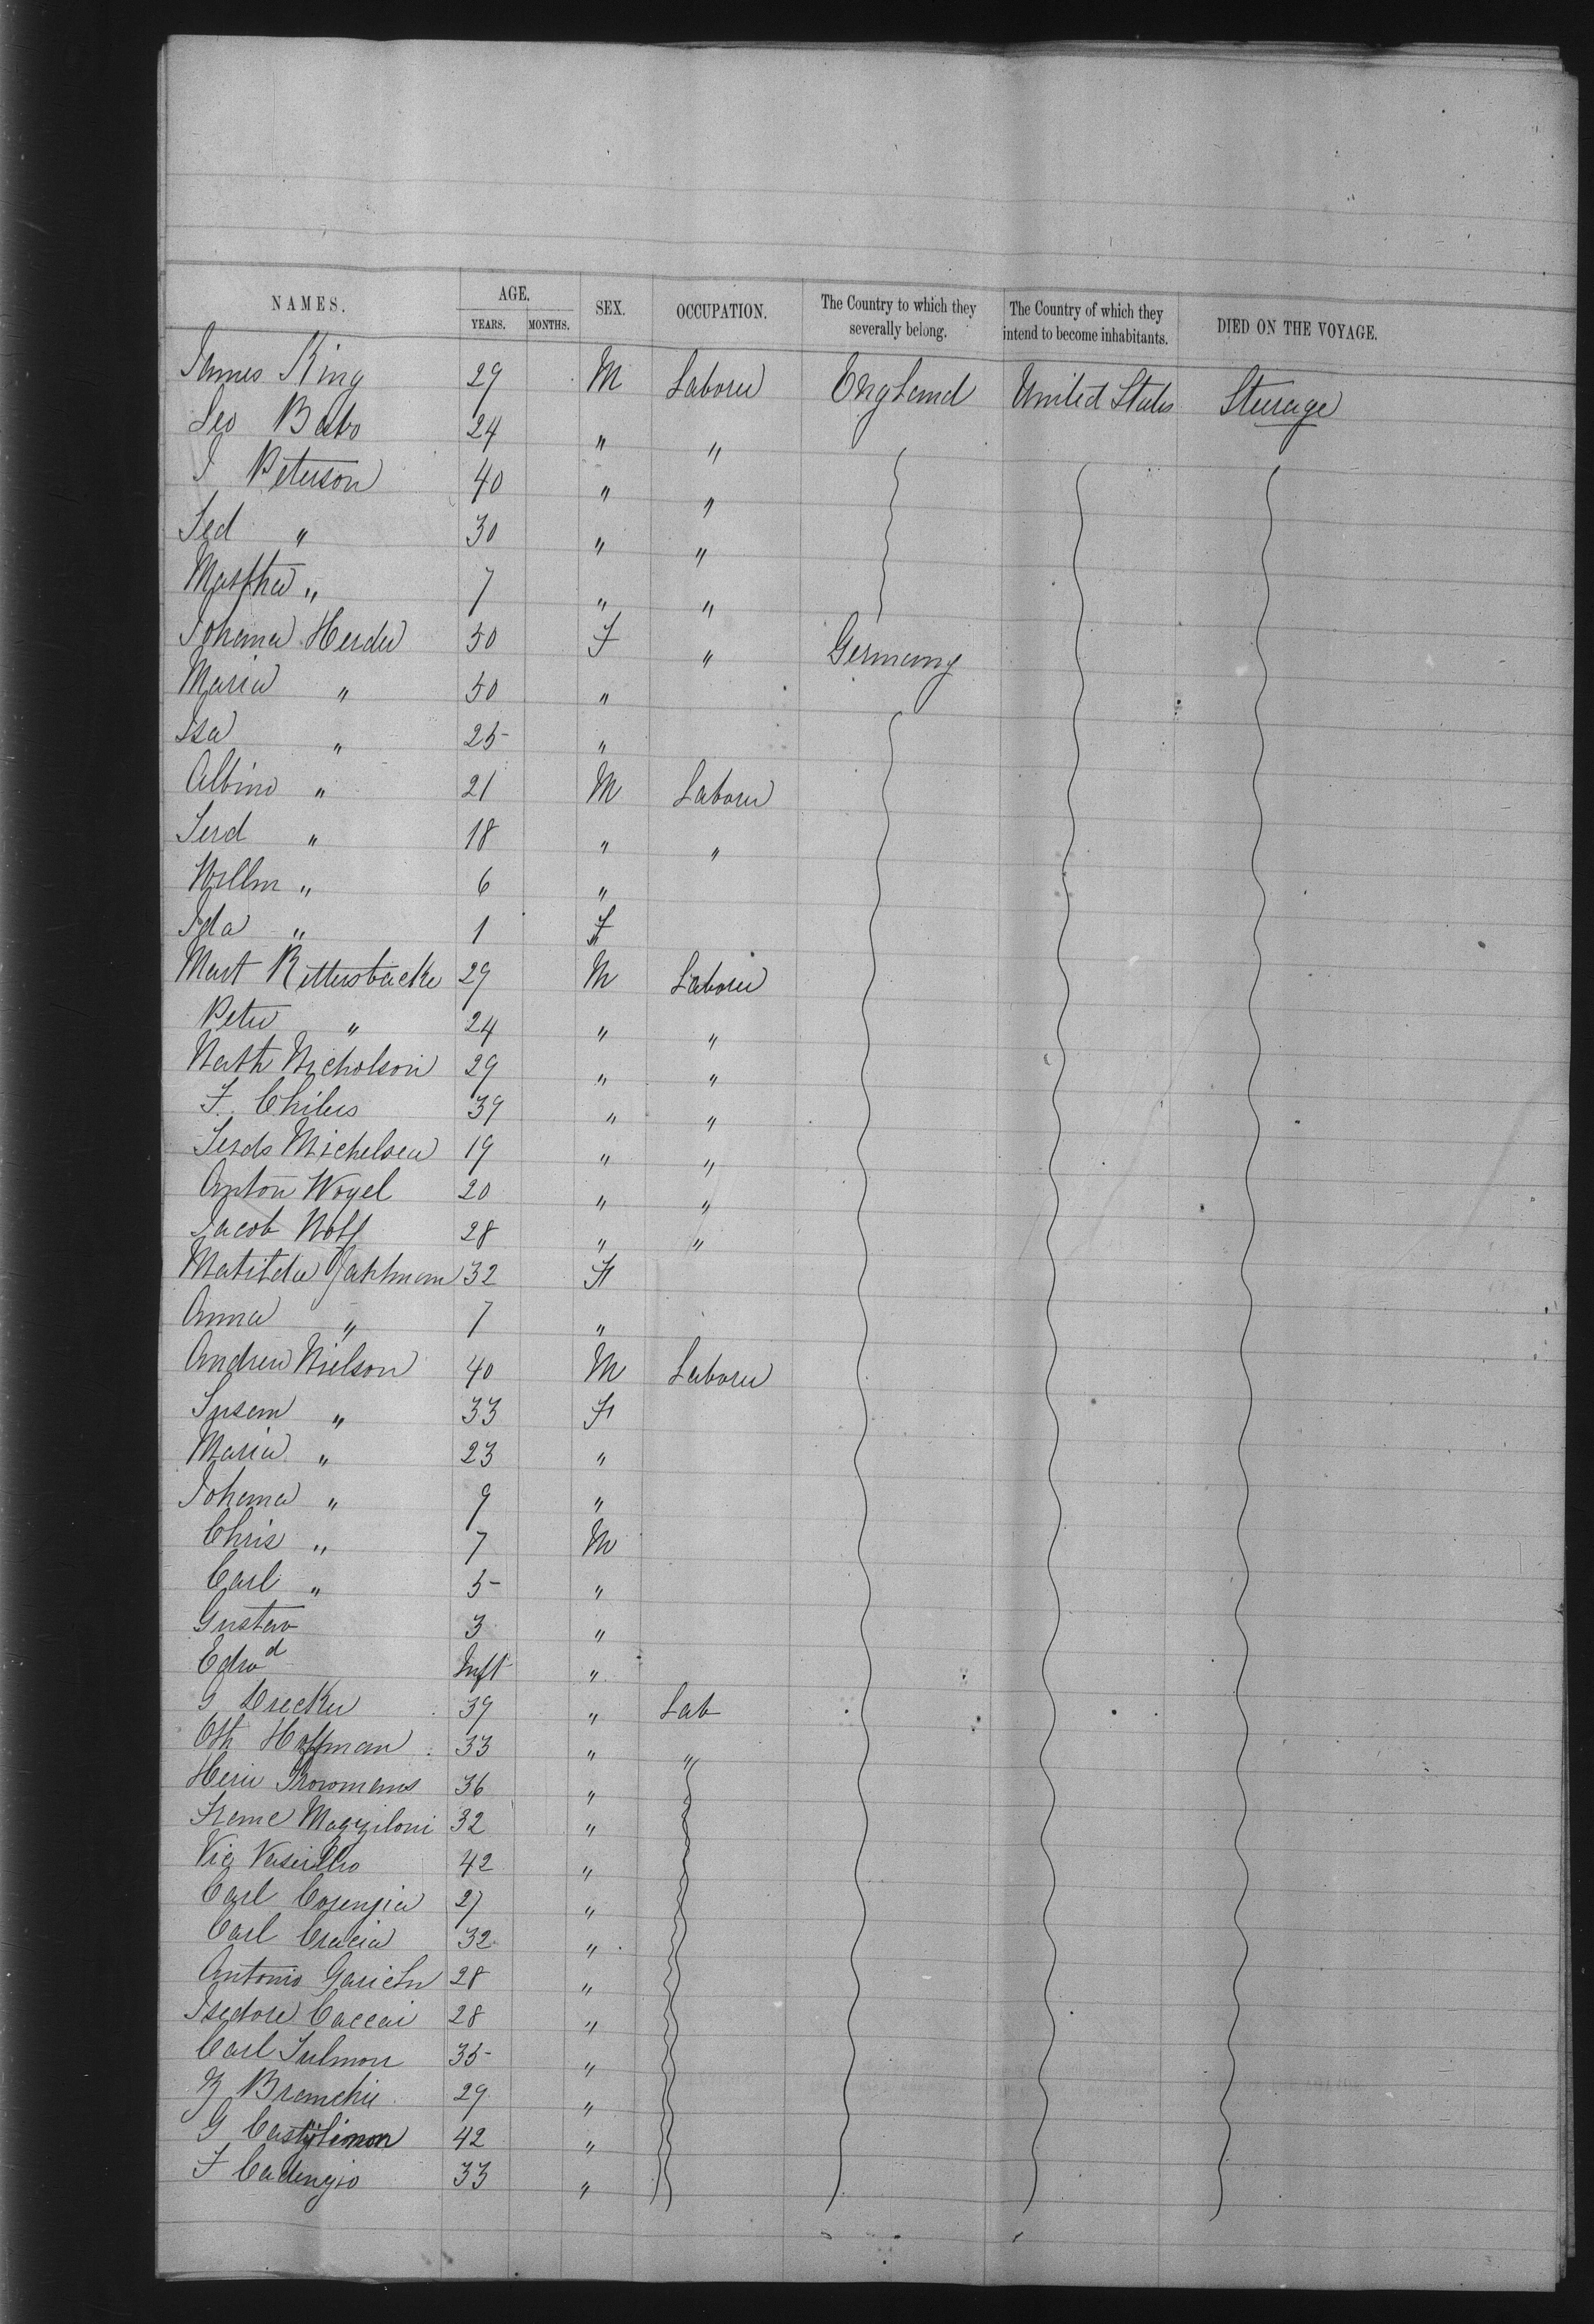 NAMES. AGE. SEX. OCCUPATION. The Country to which they severally belong. The Country of which they intend to become inhabitants. DIED ON THE VOYAGE.
YEARS. MONTHS.
James King 29 M Laborer England United States Steerage
Geo 24 " "
J Peterson 40 " "
Fed " 30 " "
Martha " 7 " "
Johana Herder 50 F " Germany
Maria " 50 "
Isa " 25 "
Albino " 21 M Laborer
Ferd " 18 " "
Willm " 6 "
Ida " 1 F
Mart Rittersbacke 29 M Laborer
Peter " 24 " "
Nath Nicholson 29 " "
F. Chiles 39 " "
Ferds Michelsen 19 " "
Anton Wogel 20 " "
Jacob Wolf 28 " "
Matilda 32 F
Anna " 7 "
Andrew Nielson 40 M Laborer
Susan " 33 F
Maria " 23 "
Johana " 9 "
Chris " 7 M
Carl " 5 "
Gustav 3 "
Edwd Inft "
G 39 " Lab
Oth Hoffman 33 " "
36 "
32 "
Vic 42 "
Carl 27 "
Carl 32 "
Antonio 28 "
Isedore Caccai 28 "
Carl 35 "
29 "
G 42 "
F 33 "